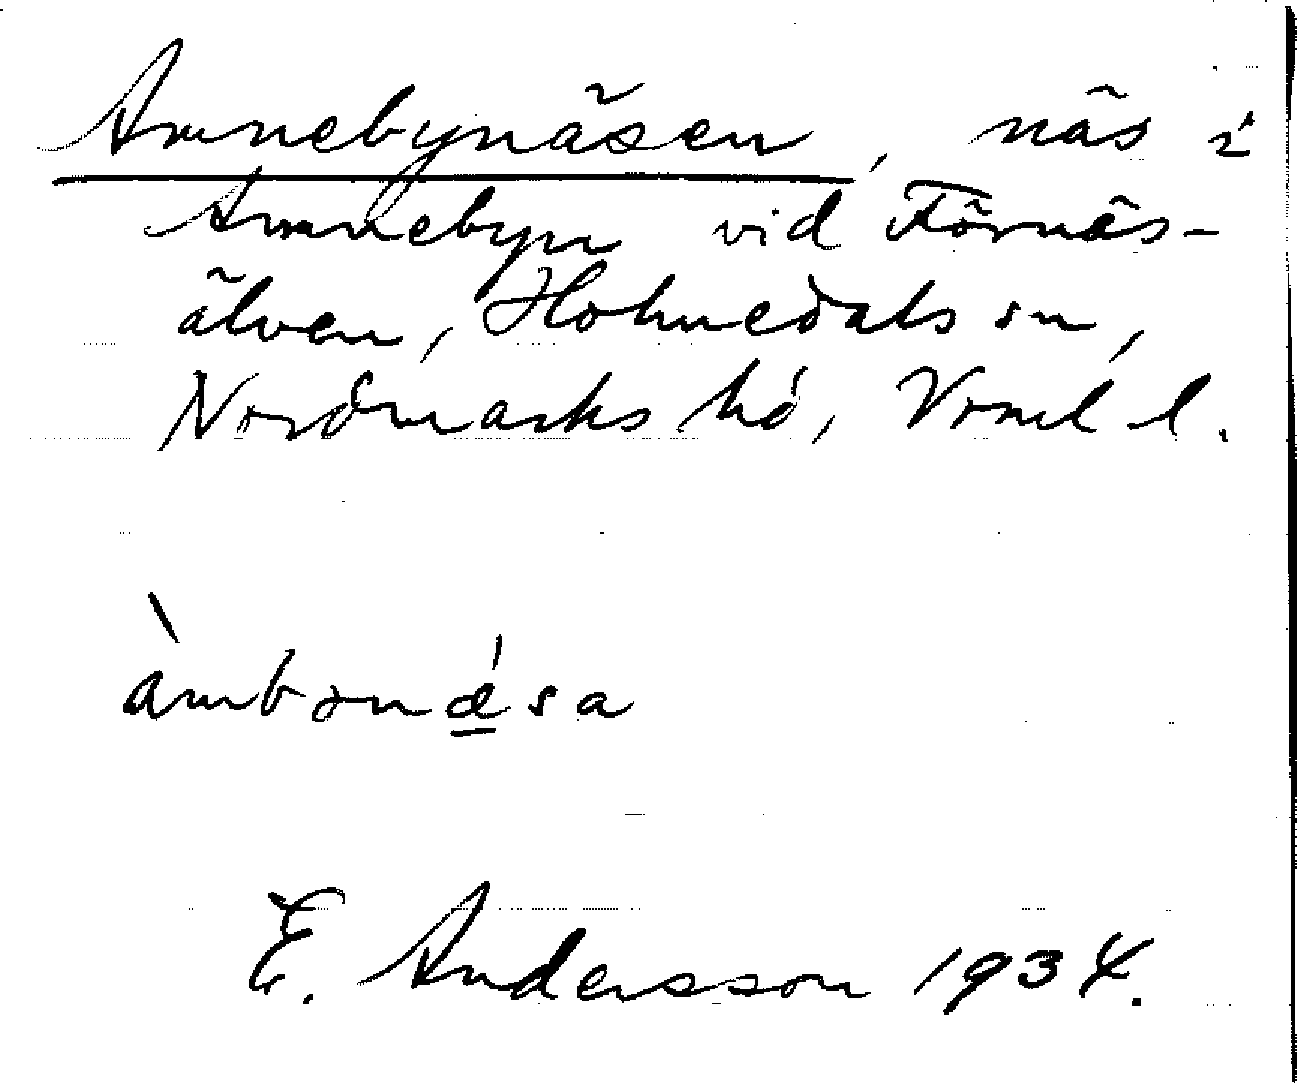 Ämnebynäsen, näs i
Ämnebyn vid Förnäs-
älven, Holmedals sn,
Nordmarks hd, Vrml l.
àmbonǽsa
E. Andersson 1934.